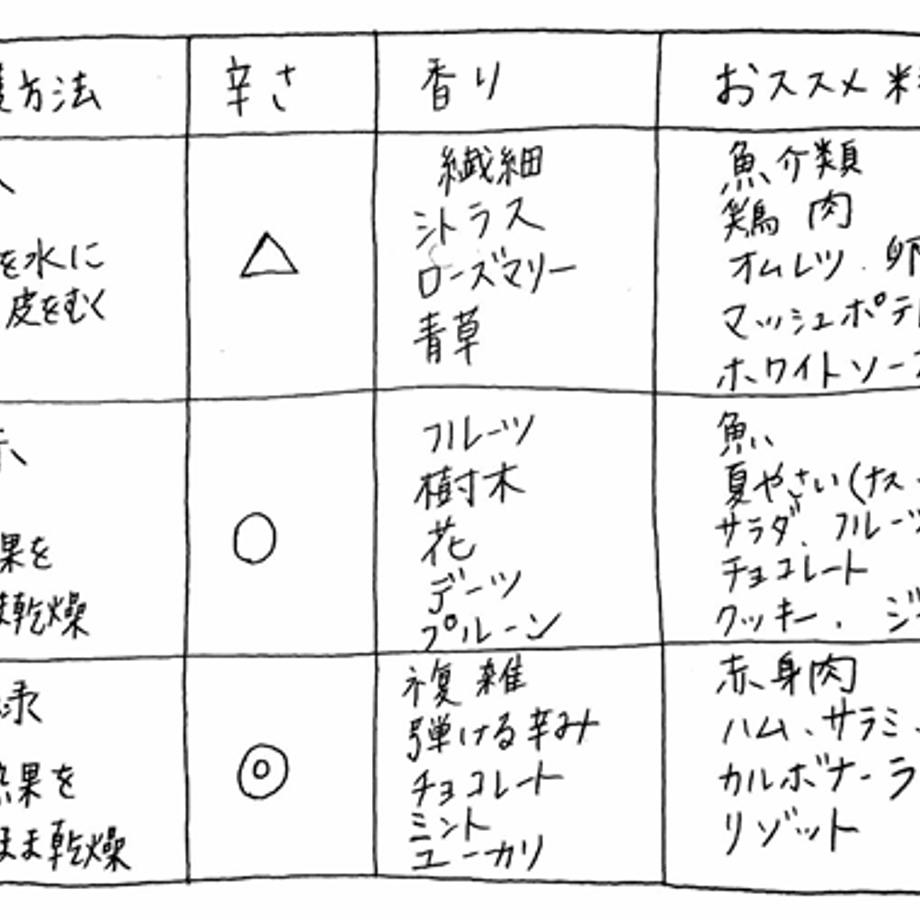 方法
辛さ
香り
おススメ料
を水に
皮をむく
△
繊細
シトラス
ローズマリー
青草
魚介類
鶏肉
オムレツ、卵
マッシュポテト
ホワイトソース
果を
ま乾燥
○
フルーツ
樹木
花
デーツ
プルーン
魚
夏やさい(ナス
サラダ、フルーツ
チョコレート
クッキー、ジ
緑
熟果を
まま乾燥
◎
複雑
弾ける辛み
チョコレート
ミント
ユーカリ
赤身肉
ハム、サラミ、
カルボナーラ
リゾット